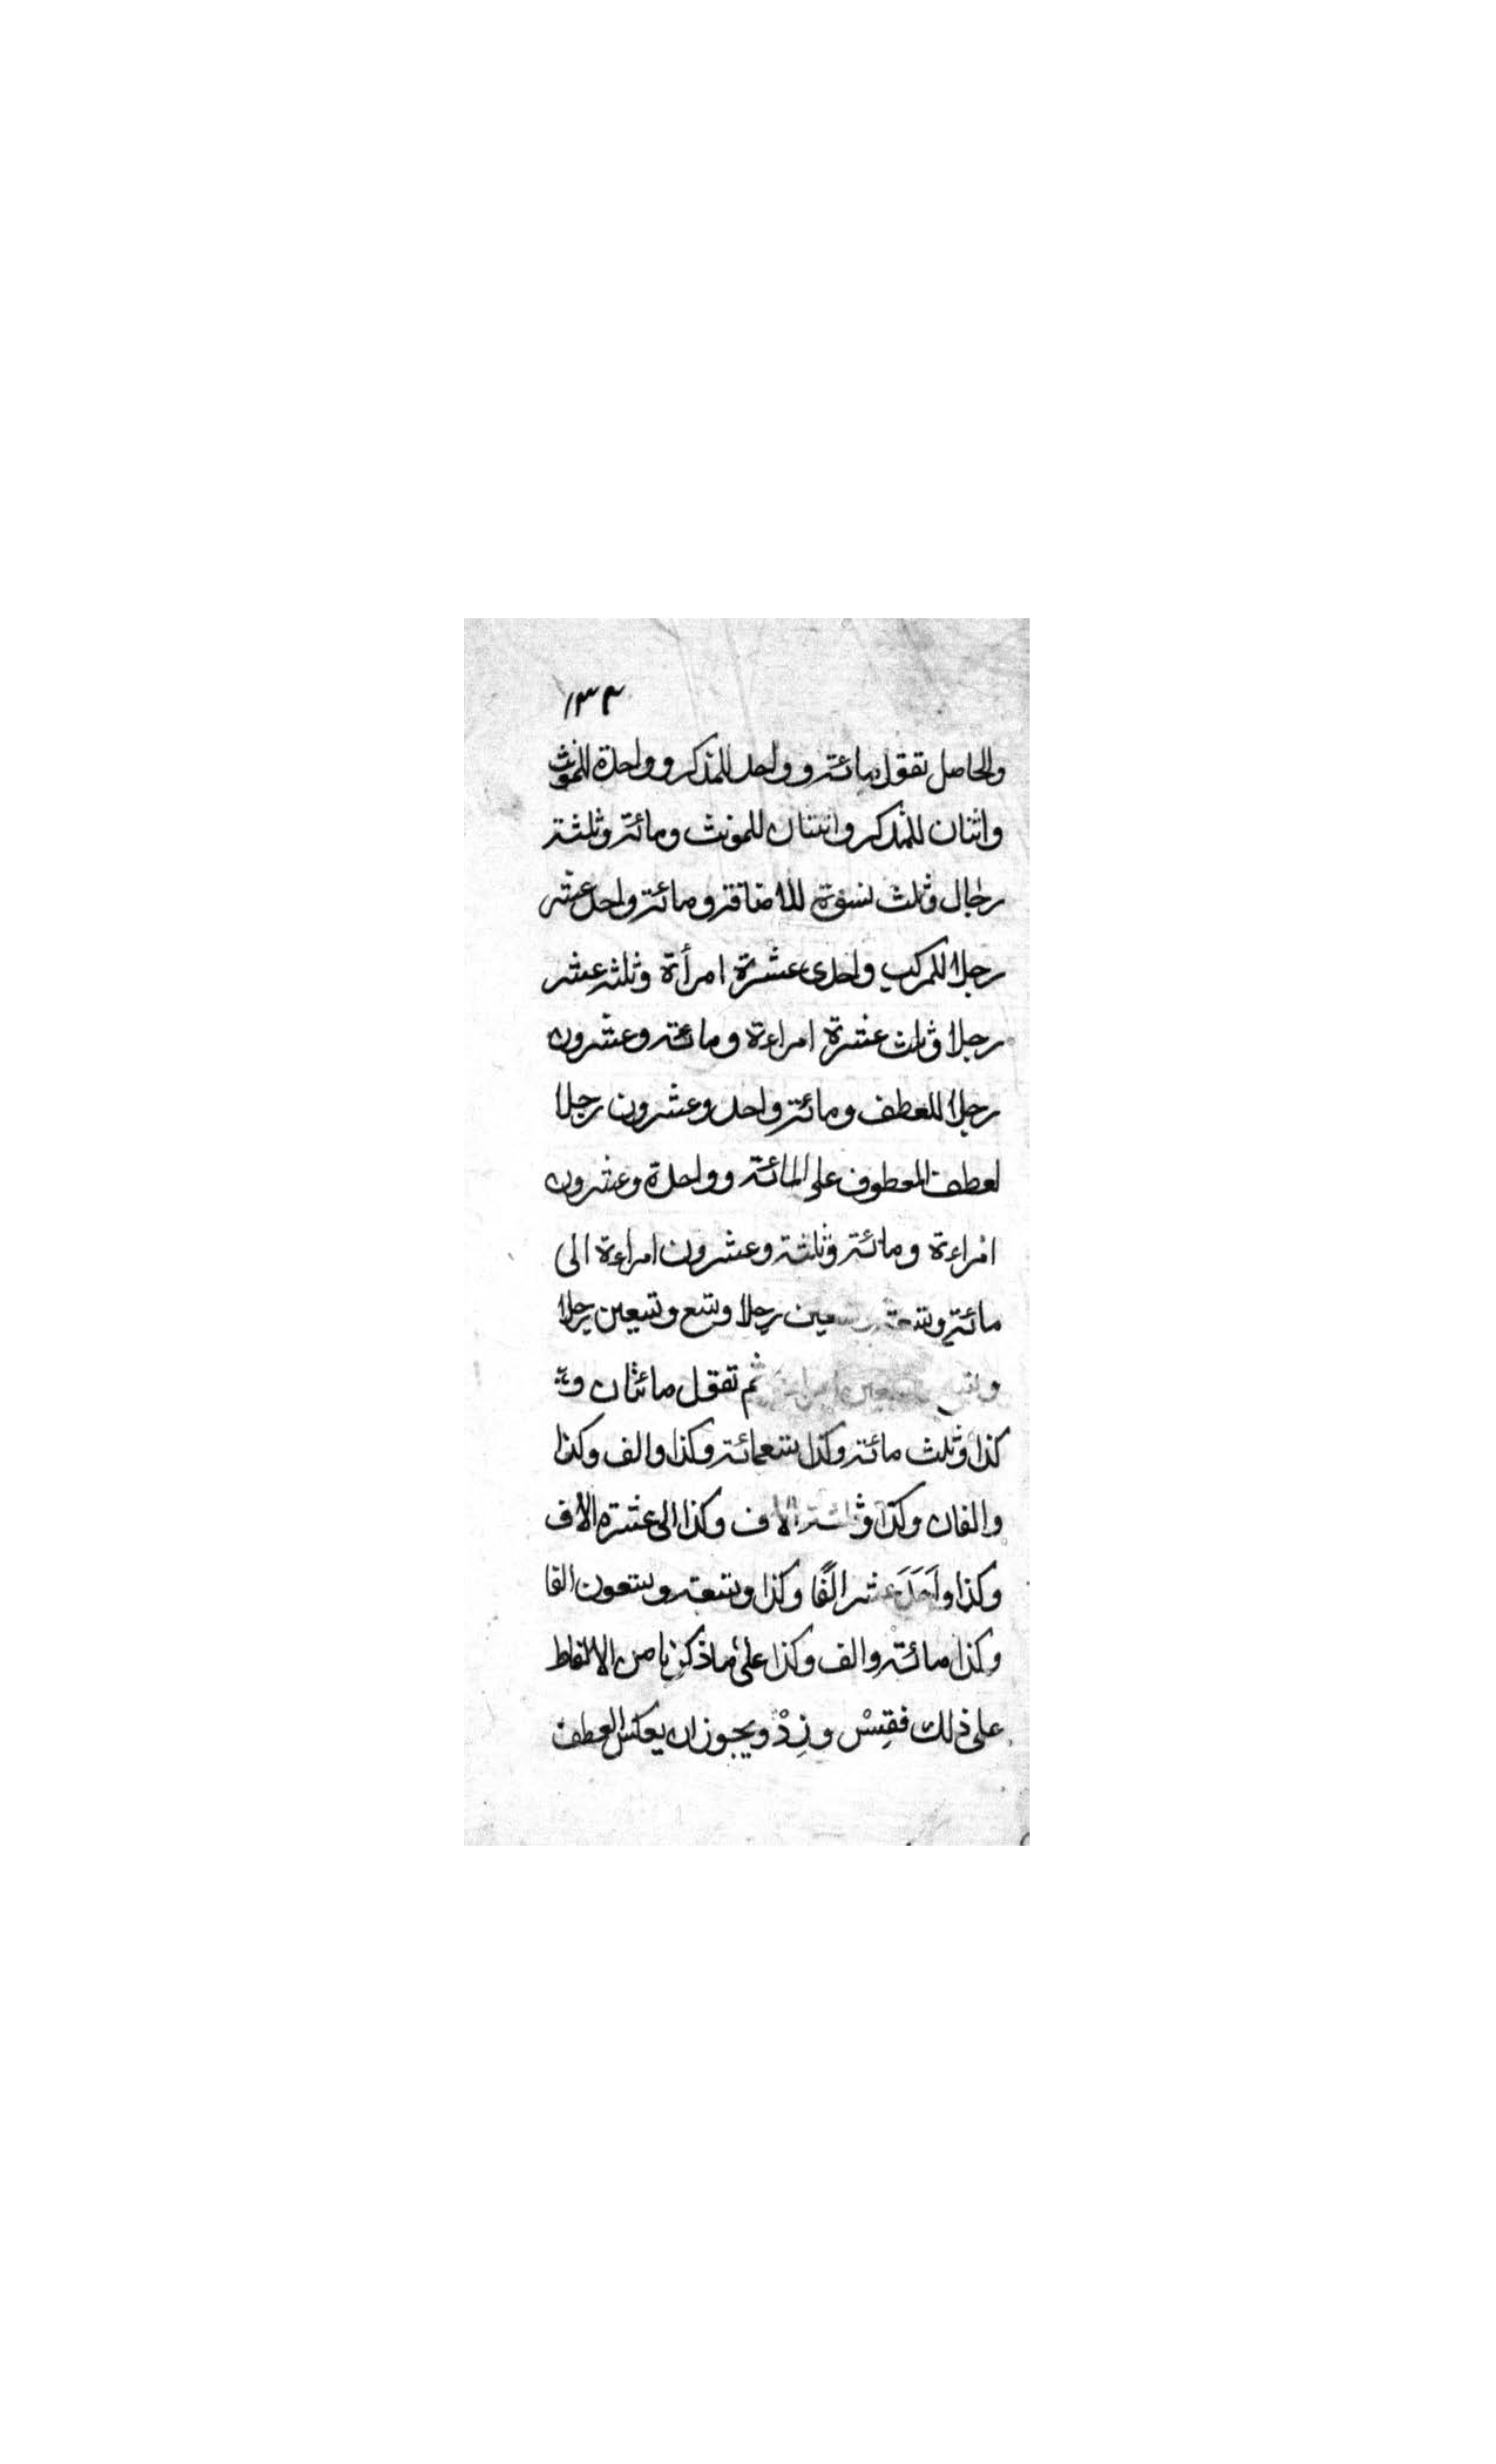 ١٣٣
والحاصل تقول مائة وواحد للمذكر وواحدة للمؤنث
واثنان للمذكر واثنتان للمونث ومائة وثلثة
رجال وثلث نسوة للاضافة ومائة واحد عشر
رجلا للمركب واحدى عشرة امرأة وثلثه عشر
رجلا وثلث عشرة امراءة ومائة وعشرون
رجلا للعطف ومائة واحد وعشرون رجلا
لعطف المعطوف على المائة وواحدة وعشرون
امراءة ومائة وثلثة وعشرون امراءة الى
مائة وتسعة وتسعين رجلا وتسع وتسعين رجلا
ثم تقول مائتان و
كذا وثلث مائة وكذا تسعمائة وكذا والف وكذا
والفان وكذا وثلثة الاف وكذا الى عشرة الاف
وكذا واَحَدَ عشر الفًا وكذا وتسعة وتسعون الفا
وكذا مائة والف وكذا على ماذكرنا من الالفاظ
على ذلك فقِسْ وزِدْ ويجوز ان يعكس العطف